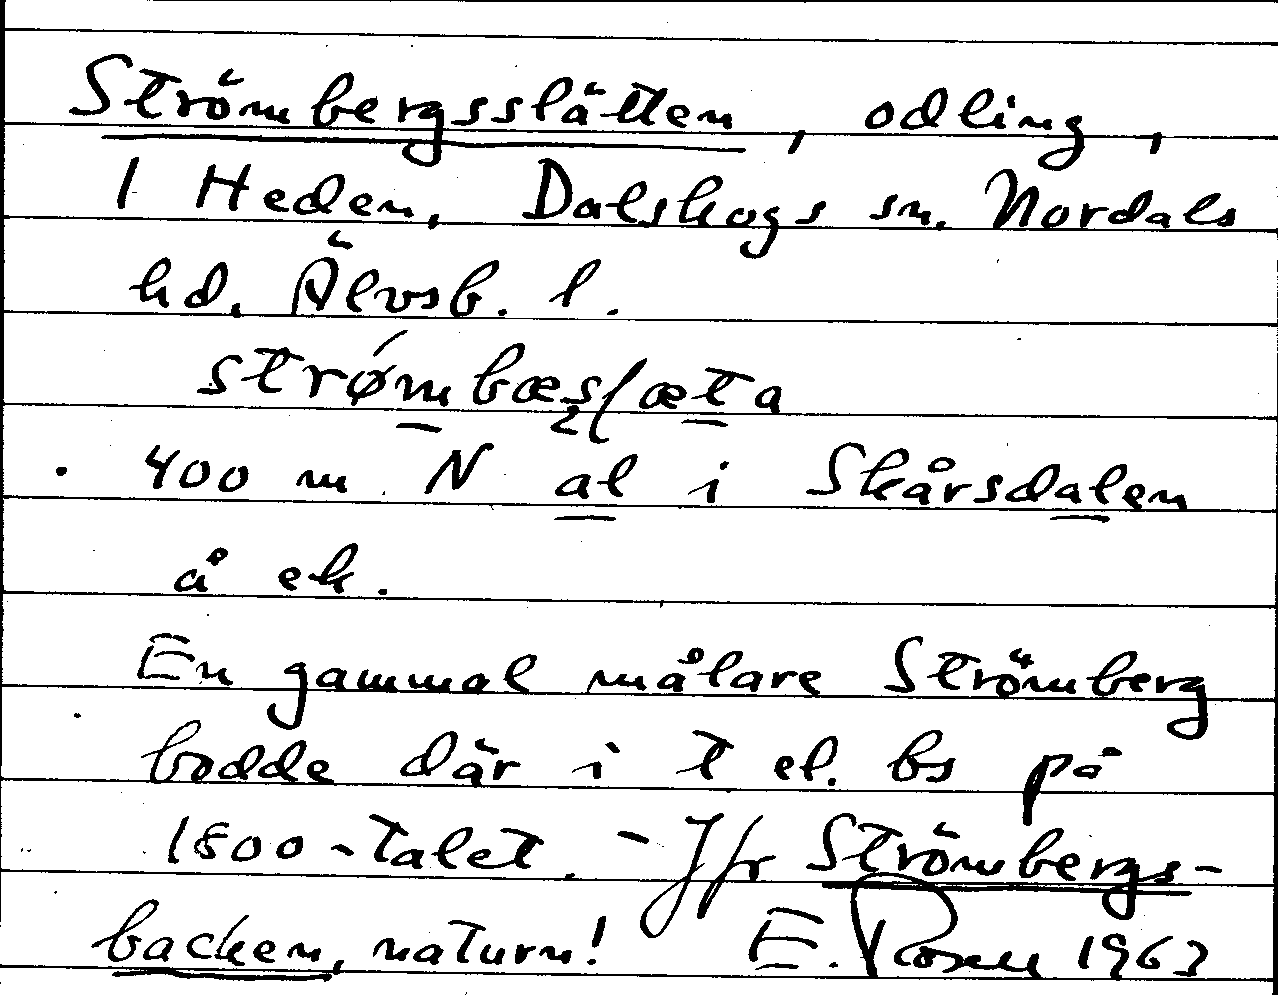 Strömbergsslätten, odling,
1 Heden, Dalskogs sn. Nordals
hd. Älvsb. l.
strømbæsʅæta
400 m N al i Skårsdalen
å ek.
En gammal målare Strömberg
bodde där i t el. bs på
1800-talet. - Jfr Strömbergs-
backen, naturn! E. Rosell 1963